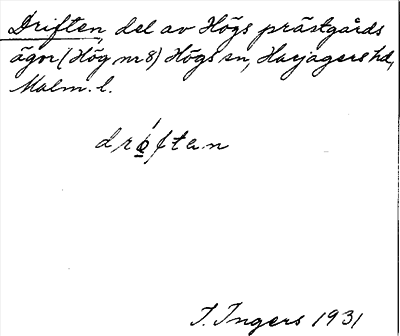 Driften, del av Högs prästgårds
ägor (Hög nr 8) Högs sn, Harjagers hd,
Malm. l.
drǿ̱ften
I. Ingers 1931